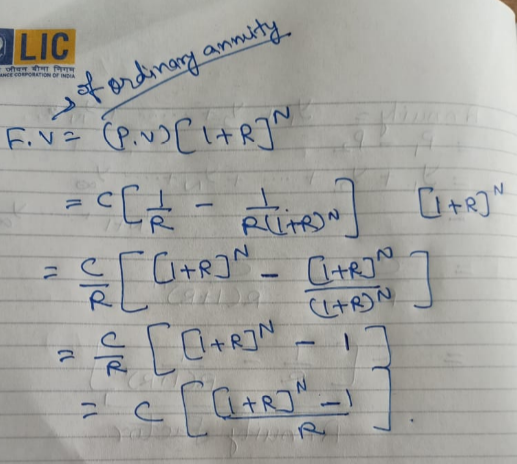 LIC
भारतीय जीवन बीमा निगम
LIFE INSURANCE CORPORATION OF INDIA
→ of ordinary annuity
F.V = (P.V)[1+R]^N
= C[1/R - 1/R(1+R)^N] [1+R]^N
= C/R [[1+R]^N - [1+R]^N/(1+R)^N]
= C/R [[1+R]^N - 1]
= C [[1+R]^N - 1/R].